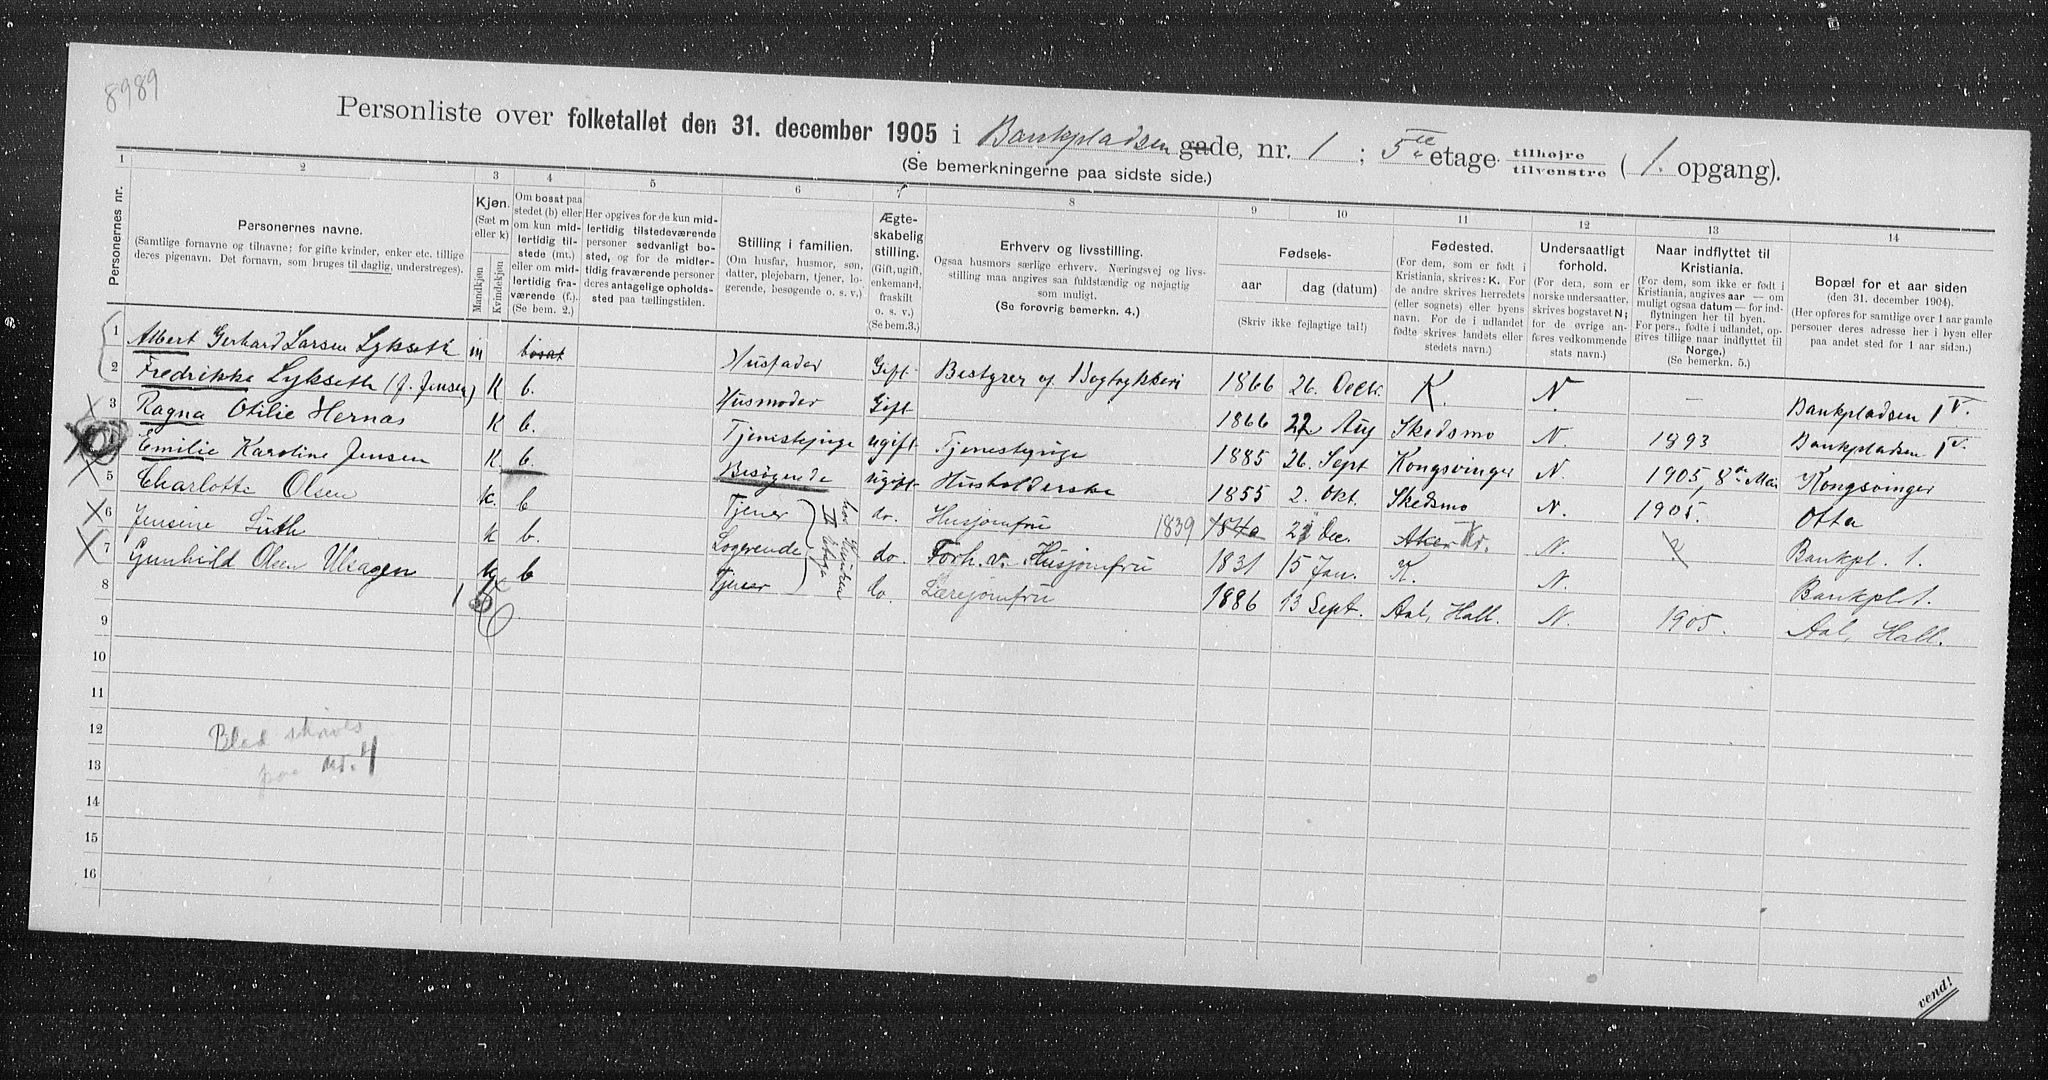 8989
Personliste over folketallet den 31. december 1905 i Bankpladsen gade, nr. 1 ; 5te etage tilhøjre tilvenstre ( 1. opgang).
(Se bemerkningerne paa sidste side.)
1 2 3 4 5 6 7 8 9 10 11 12 13 14
Personernes nr.
Personernes navne.
(Samtlige fornavne og tilnavne; for gifte kvinder, enker etc. tillige
deres pigenavn. Det fornavn, som bruges til daglig, understreges).
Kjøn.
(Sæt m
eller k)
Mandkjøn
Kvindekjøn
Om bosat paa
stedet (b) eller
om kun mid-
lertidig til-
stede (mt.)
eller om mid-
lertidig fra-
værende (f.).
(Se bem. 2.)
Her opgives for de kun mid-
lertidig tilstedeværende
personer sedvanligt bo-
sted, og for de midler-
tidig fraværende personer
deres antagelige opholds-
sted paa tællingstiden.
Stilling i familien.
(Om husfar, husmor, søn,
datter, plejebarn, tjener, lo-
gerende, besøgende o. s. v.)
Ægte-
skabelig
stilling.
(Gift, ugift,
enkemand,
fraskilt
o. s. v.)
(Se bem. 3.)
Erhverv og livsstilling.
Ogsaa husmors særlige erhverv. Næringsvej og livs-
stilling maa angives saa fuldstændig og nøjagtig
som muligt.
(Se forøvrig bemerkn. 4.)
Fødsels-
aar
dag (datum)
(Skriv ikke fejlagtige tal!)
Fødested.
(For dem, som er født i
Kristiania, skrives: K. For
de andre skrives herredets
(eller sognets) eller byens
navn. For de i udlandet
fødte skrives landets eller
stedets navn.)
Undersaatligt
forhold.
(For dem, som er
norske undersaatter,
skrives bogstavet N;
for de øvrige an-
føres vedkommende
stats navn.)
Naar indflyttet til
Kristiania.
(For dem, som ikke er født i
Kristiania, angives aar — om
muligt ogsaa datum — for ind-
flytningen her til byen.
For pers., fødte i udlandet, op-
gives tillige naar indflyttet til
Norge.)
(Se bemerkn. 5.)
Bopæl for et aar siden
(den 31. december 1904).
(Her opføres for samtlige over 1 aar gamle
personer deres adresse her i byen eller
paa andet sted for 1 aar siden.)
1 Albert Gerhard Larsen Lykseth m bosat Husfader Gift Bestyrer af Bogtrykkeri 1866 26. Decbr. K. N. — Bankpladsen 1 V.
2 Fredrikke Lykseth (f. Jensen) K b. Husmoder Gift 1866 22 Aug Skedsmo N. 1893 Bankpladsen 1 V.
3 Ragna Otilie Hernas K b. Tjenestepige ugift Tjenestepige 1885 26. Sept Kongsvinger N. 1905, 8de Mai Kongsvinger
Emilie Karoline Jensen K. b. Besøgende ugift Husholderske 1855 2. Okt. Skedsmo N. 1905. Otta
5 Charlotte Olsen k. b Tjener do. Husjomfru 1839 1840 21 Dec. Aker Kr. N. Bankpl. 1.
6 Jensine Lüth k b. Logerende do. Forh. v. Husjomfru 1831 15 Jan. K. N. Bankpl 1.
7 Gunhild Olsen Ulsagen k b Tjener do. Lærejomfru 1886 13 Sept. Aal, Hall. N. 1905. Aal, Hall.
hos
II Etage
8 1 6
9
10
11
12
13
14
15
16
Blad skrives
paa nr. 4
vend!